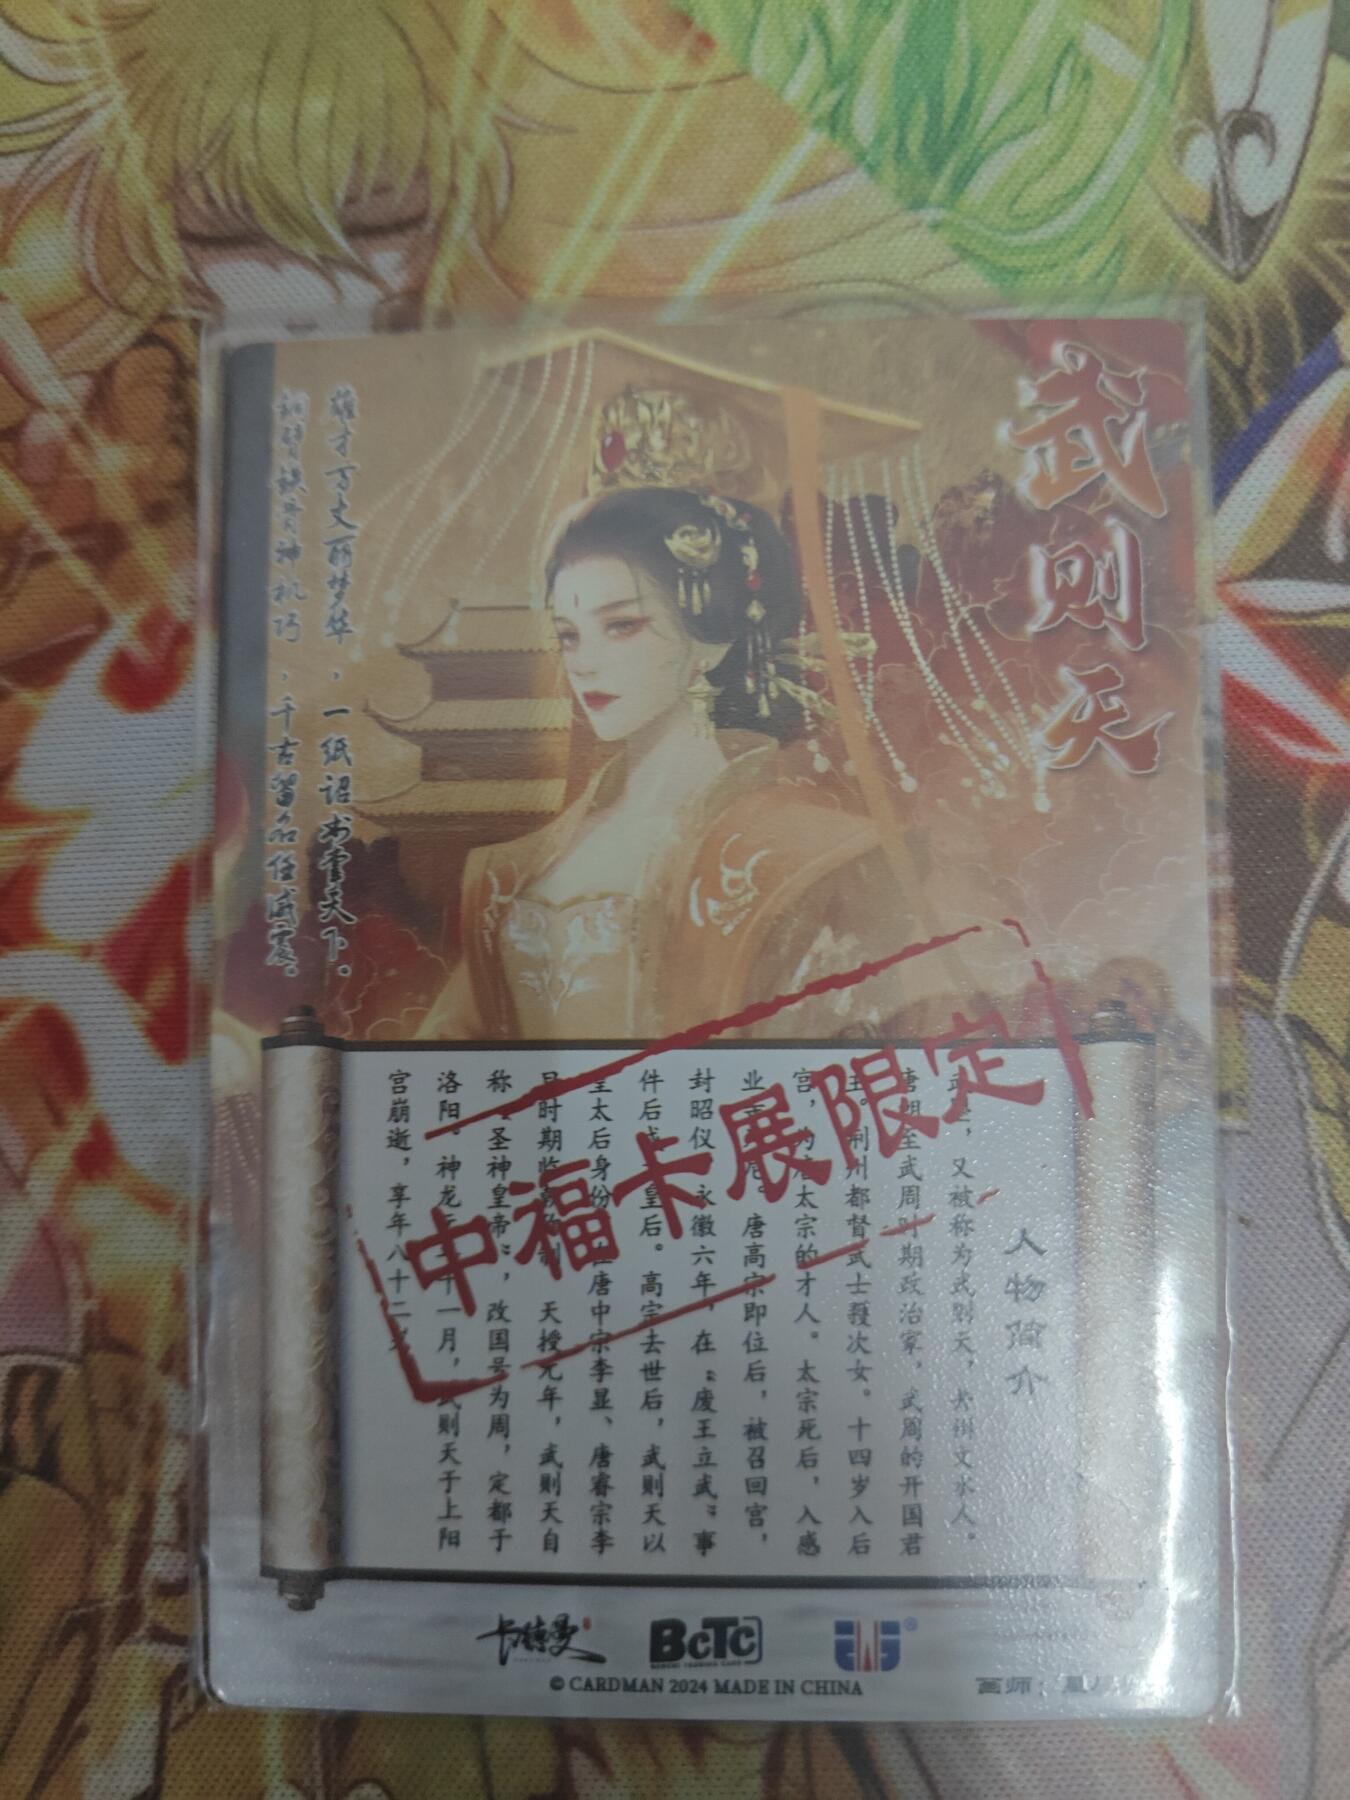 武则天
雄才万丈丽梦华，一纸诏书震天下。
铁骨神机巧，千古留名任威震。
人物简介
，又被称为武则天，并州文水人。
唐朝至武周时期政治家，武周的开国君
主。荆州都督武士彟次女。十四岁入后
宫，为唐太宗的才人。太宗死后，入感
业寺为尼。唐高宗即位后，被召回宫，
封昭仪。永徽六年，在“废王立武”事
件后成为皇后。高宗去世后，武则天以
皇太后身份，在唐中宗李显、唐睿宗李
旦时期临朝称制。天授元年，武则天自
称“圣神皇帝”，改国号为周，定都于
洛阳。神龙元年十一月，武则天于上阳
宫崩逝，享年八十二岁
中福卡展限定
卡德曼
BCTC
© CARDMAN 2024 MADE IN CHINA
画师：星